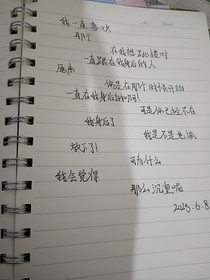 我一直喜欢
那个
在我想
一直跟在我身后的人
原来
他是在那个时候开始
一直在我身后的
可是他已经不在
我身后了
我是不是也该
放下了!
可为什么
我会觉得
那么沉重呢
2023.6.8